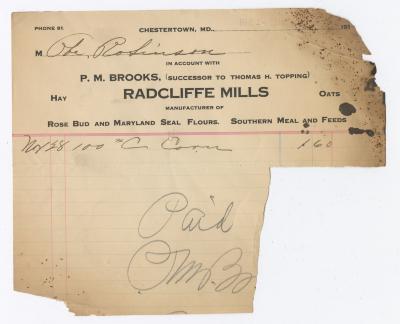 PHONE 81. CHESTERTOWN, MD., 191
M Obe Robinson
IN ACCOUNT WITH
P. M. BROOKS, (SUCCESSOR TO THOMAS H. TOPPING)
HAY RADCLIFFE MILLS OATS
MANUFACTURER OF
ROSE BUD AND MARYLAND SEAL FLOURS. SOUTHERN MEAL AND FEEDS
Nov 28 100 # C Corn 1.60
Paid
P.M.B